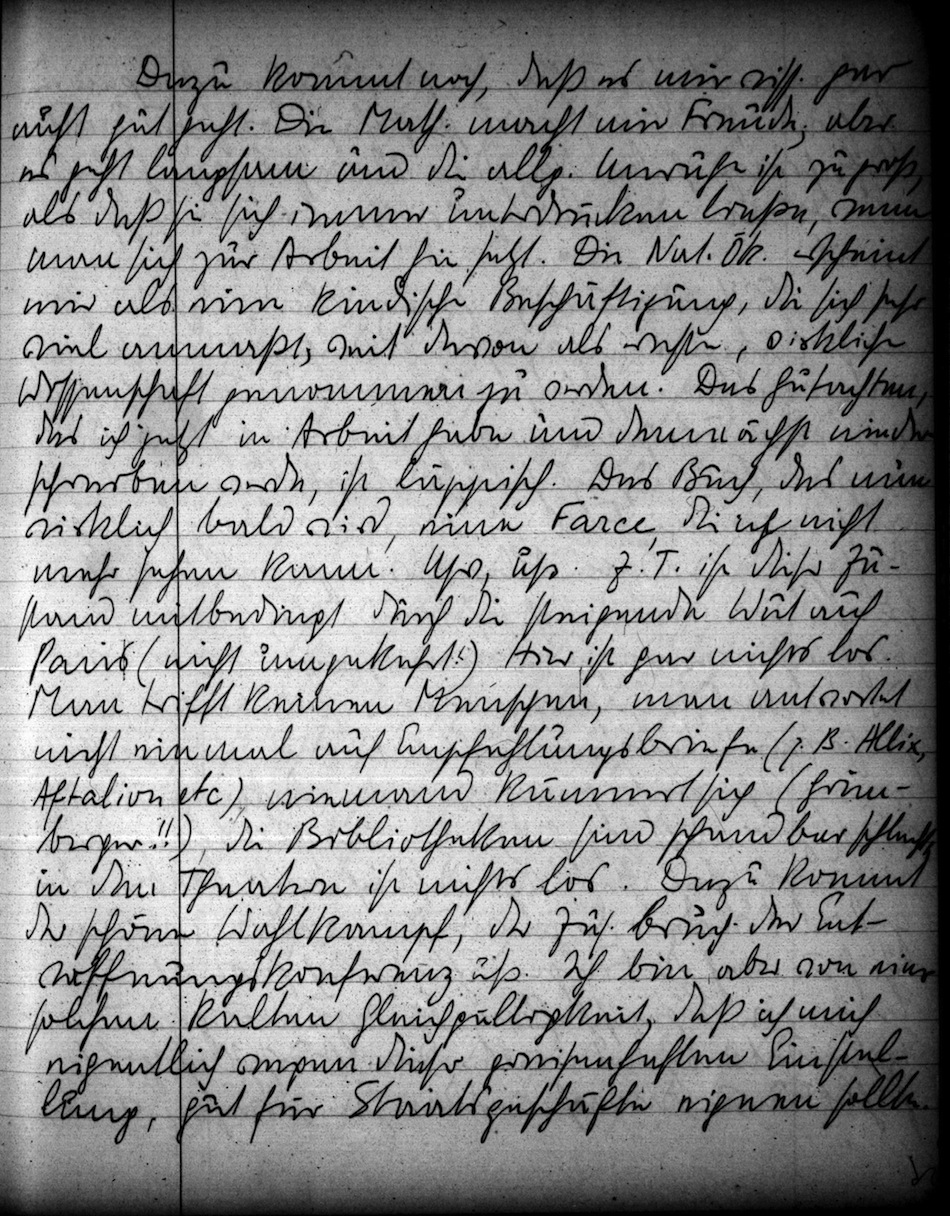 Dazu kommt noch, daß es mir wiss. gar
nicht gut geht. Die Math. macht mir Freude, aber
es geht langsam und die allg. Unruhe ist zu groß,
als daß sie sich immer unterdrücken ließe, wenn
man sich zur Arbeit hin setzt. Die Nat. Ök. erscheint
mir als eine kindische Beschäftigung, die sich sehr
viel anmaßt, mit davon als echte, wirkliche
Wissenschaft genommen zu werden. Das Gutachten,
das ich jetzt in Arbeit habe und demnächst nieder
schreiben werde, ist läppisch. Das Buch, das nun
wirklich bald wird, eine Farce, die ich nicht
mehr sehen kann. Usw, usw. Z.T. ist dieser Zu-
stand mitbedingt durch die steigende Wut auf
Paris (nicht umgekehrt!) Hier ist gar nichts los.
Man trifft keinen Menschen, man antwortet
nicht einmal auf Empfehlungsbriefe (z.B. Allix,
Aftalion etc) niemand kümmert sich (Grün-
berger!!), die Bibliotheken sind scheinbar schlecht,
in den Theatern ist nichts los. Dazu kommt
der schöne Wahlkampf, der Zus.bruch der Ent-
waffnungskonferenz usw. Ich bin aber von einer
solchen kalten Gleichgültigkeit, daß ich mich
eigentlich wegen dieser greisenhaften Einstel-
lung, gut für Staatsgeschäfte eignen sollte.